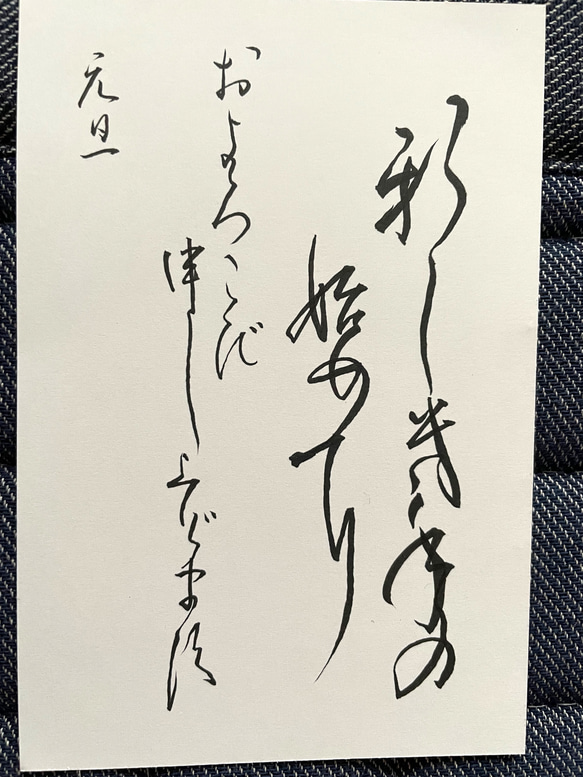 新しき年の
始めに
およろこび
申し上げます
元旦